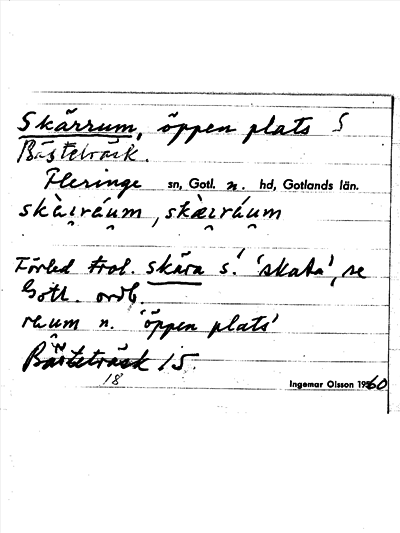 Skärrum, öppen plats S
Bästeträsk.
Fleringe sn, Gotl. n. hd, Gotlands län.
skàɪráum, skæ̀ɪráum
Förled trol. skära s. 'skata', se
Gotl. ordb.
raum n. 'öppen plats'
Bästeträsk 15.
18
Ingemar Olsson 1960